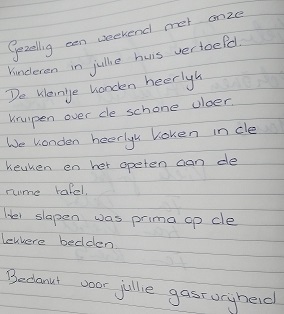 Gezellig een weekend met onze
kinderen in jullie huis vertoefd.
De kleintje konden heerlijk
kruipen over de schone vloer.
We konden heerlijk koken in de
keuken en het opeten aan de
ruime tafel.
Het slapen was prima op de
lekkere bedden
Bedankt voor jullie gastvrijheid